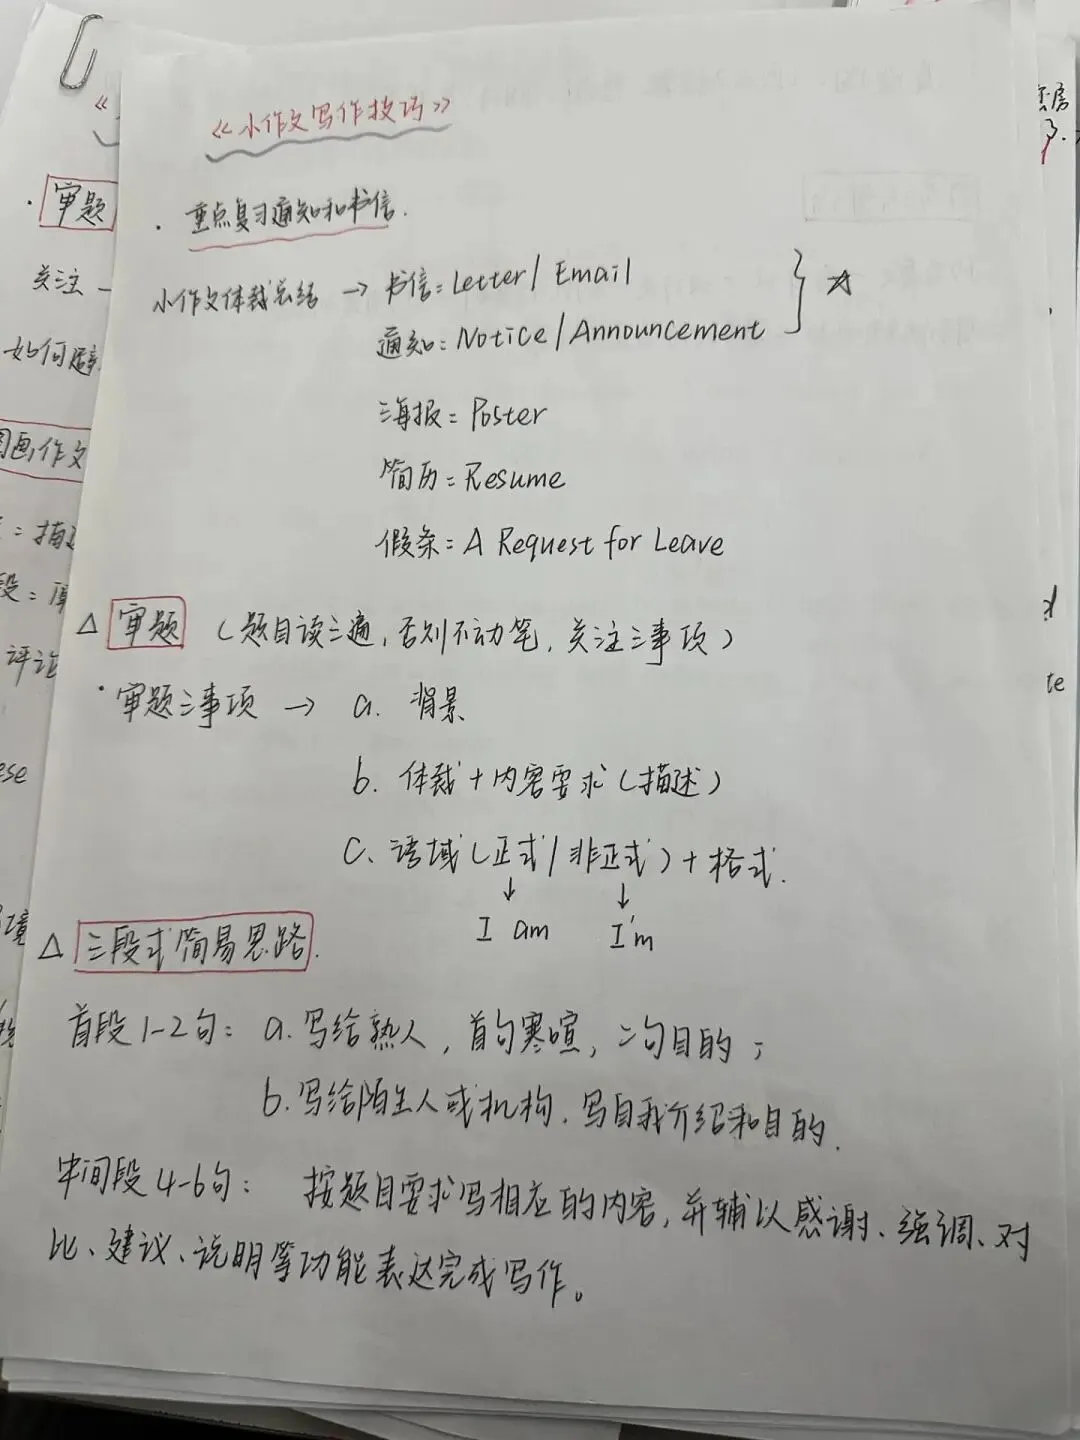 《小作文写作技巧》
· 重点复习通知和书信.
小作文体裁总结 → 书信: Letter / Email
通知: Notice / Announcement
☆
海报: Poster
简历: Resume
假条: A Request for Leave
△ 审题 (题目读三遍, 否则不动笔, 关注三事项)
· 审题三事项 → a. 背景
b. 体裁 + 内容要求 (描述)
c. 语域 (正式 / 非正式) + 格式.
↓ ↓
I am I'm
△ 三段式简易思路.
首段1-2句: a. 写给熟人, 首句寒暄, 二句目的;
b. 写给陌生人或机构, 写自我介绍和目的.
中间段4-6句: 按题目要求写相应的内容, 并辅以感谢、强调、对
比、建议、说明等功能表达完成写作。
《
· 审题
关注
如何避
图画作文
: 描述
段:
评论
ese
境
te